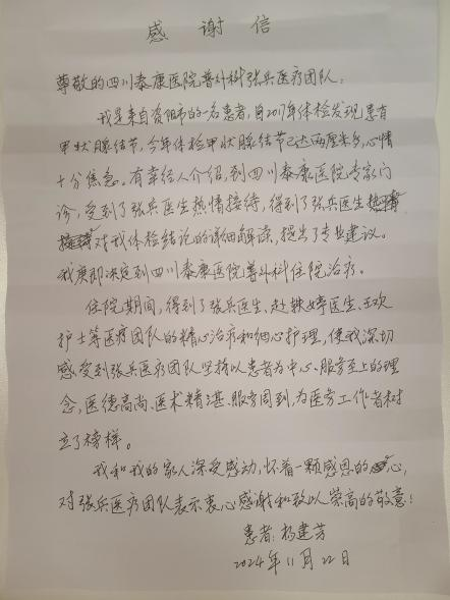 感谢信
尊敬的四川泰康医院普外科张兵医疗团队:
我是来自资阳市的一名患者,自2017年体检发现患有
甲状腺结节,今年体检甲状腺结节已达两厘米多,心情
十分焦急。有幸经人介绍,到四川泰康医院专家门
诊,受到了张兵医生热情接待,得到了张兵医生
对我体检结论的详细解读,提出了专业建议。
我便即决定到四川泰康医院普外科住院治疗。
住院期间,得到了张兵医生、赵婷医生、王欢
护士等医疗团队的精心治疗和细心护理,使我深切
感受到张兵医疗团队坚持以患者为中心、服务至上的理
念,医德高尚、医术精湛、服务周到,为医务工作者树
立了榜样。
我和我的家人深受感动,怀着一颗感恩的心,
对张兵医疗团队表示衷心感谢和致以崇高的敬意!
患者:杨建芳
2024年11月22日